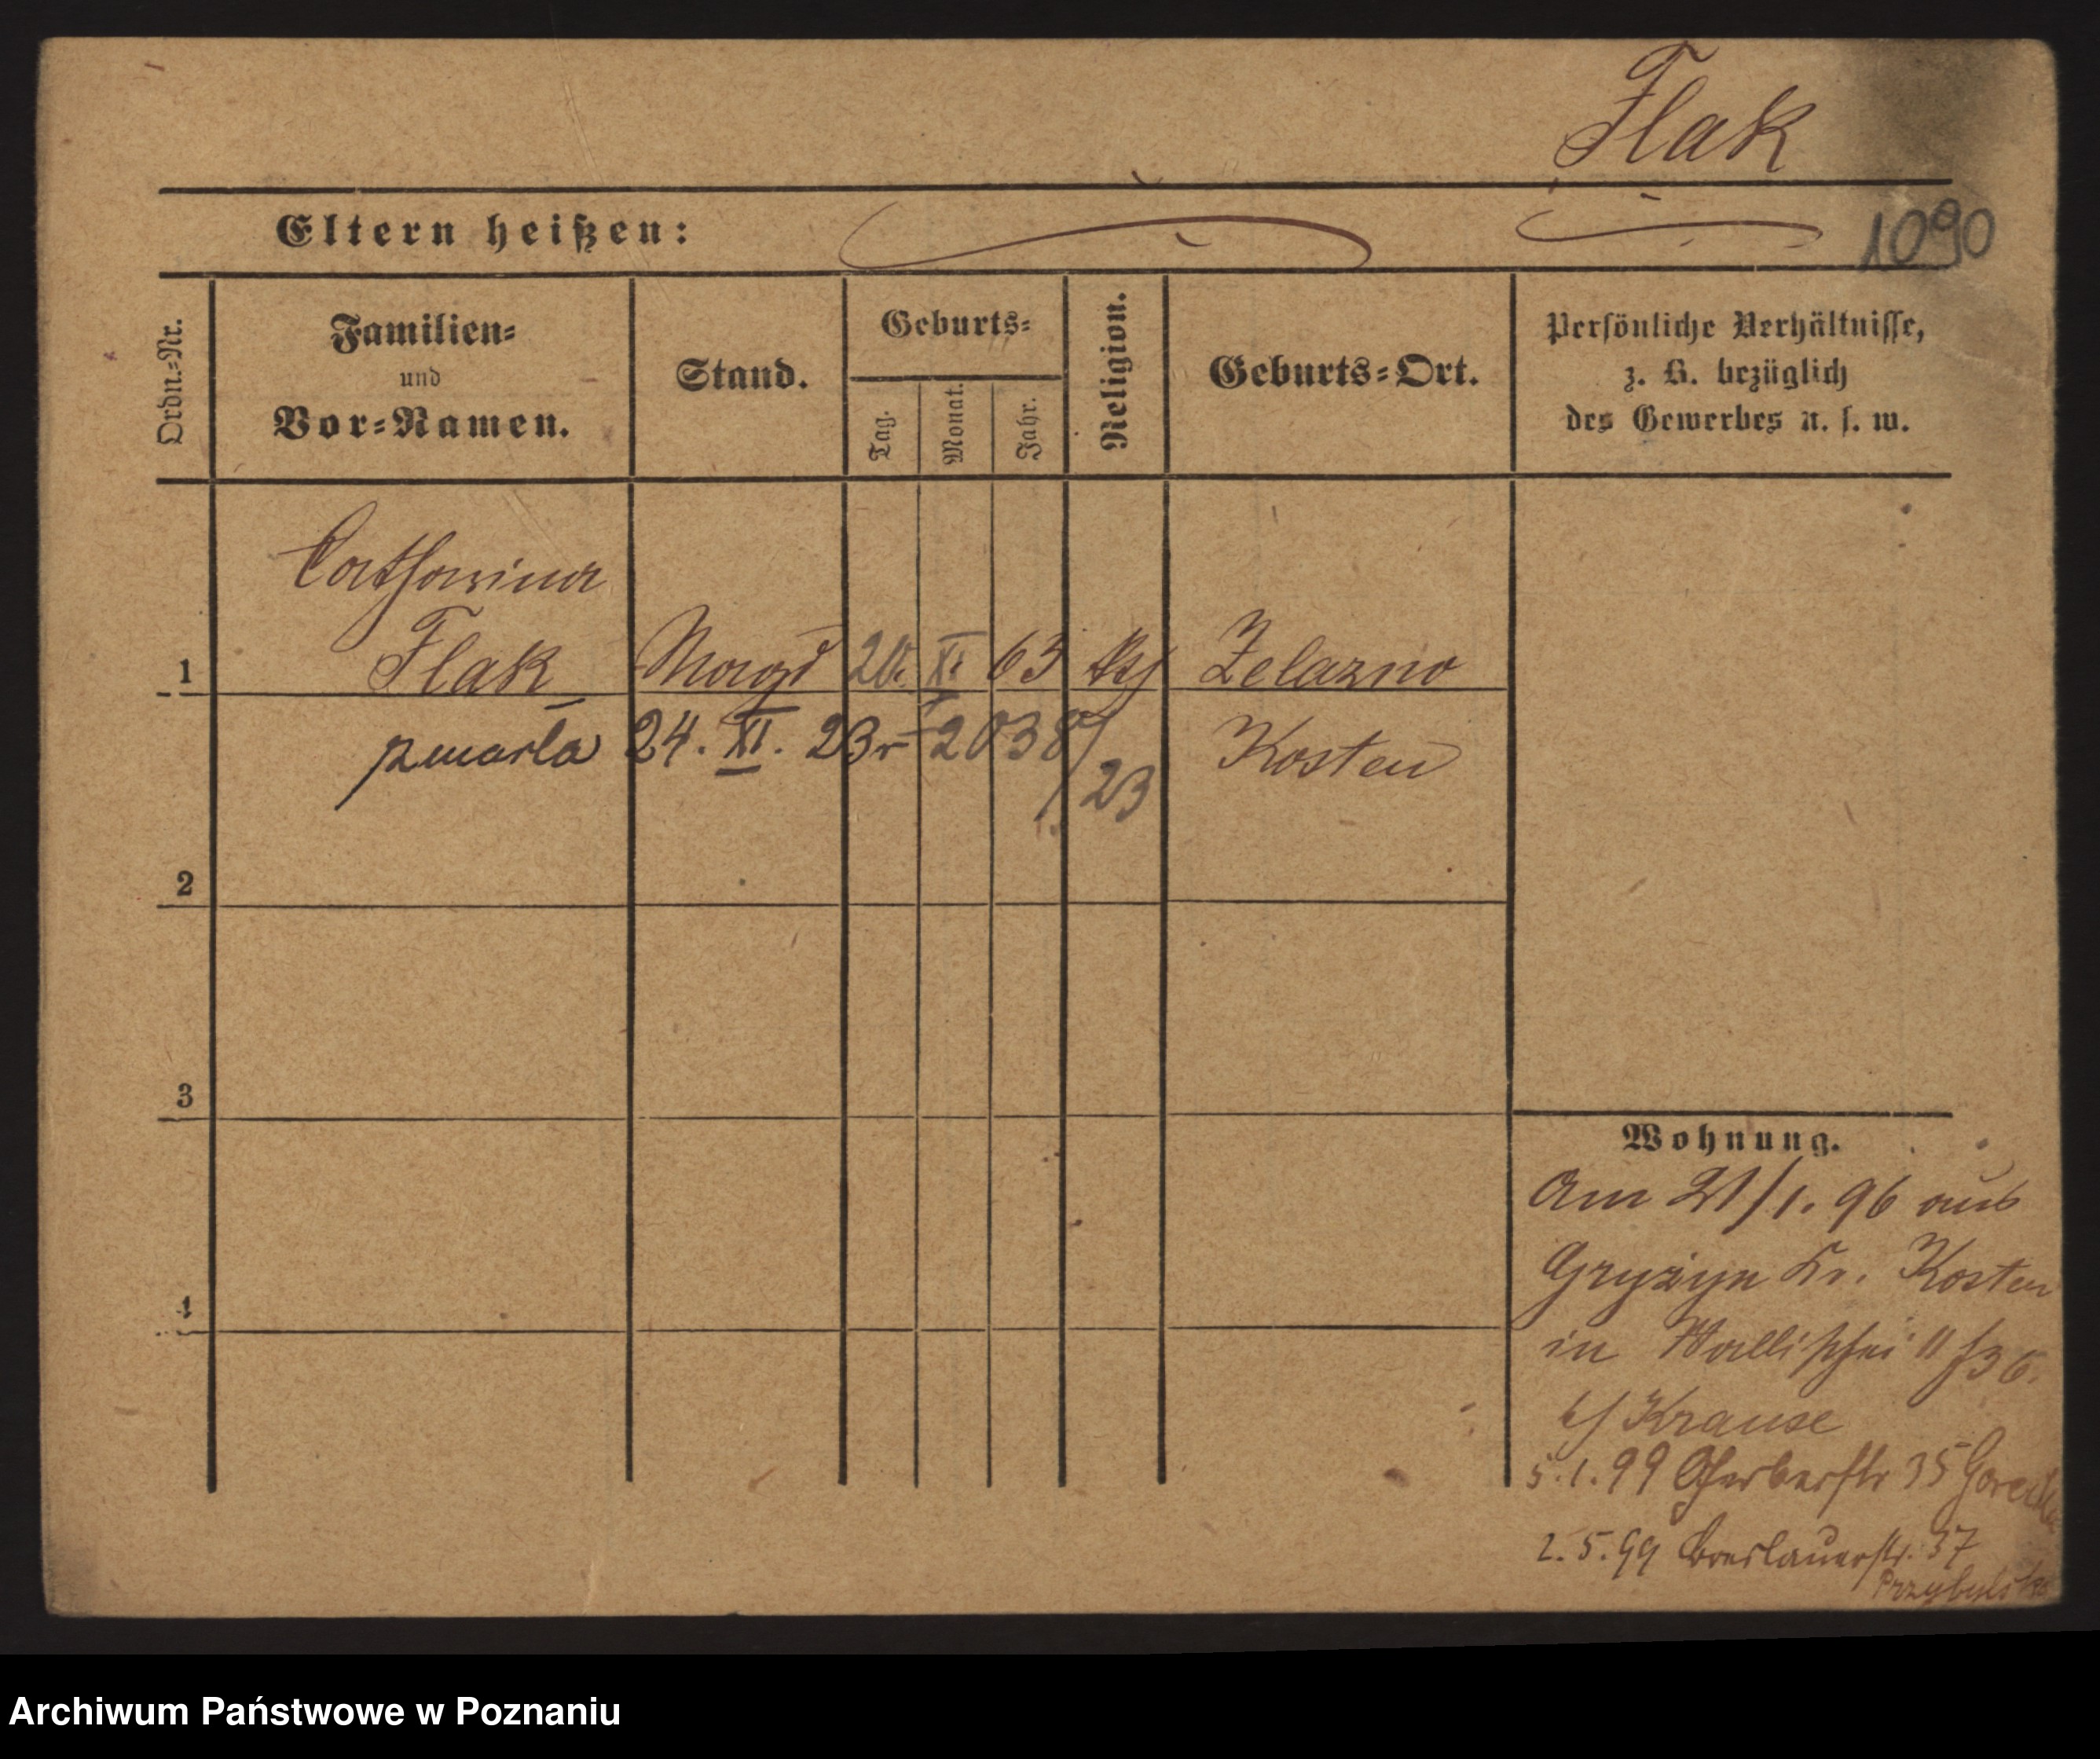 Flak
Eltern heißen:
1090
Ordn.-Nr.
Familien-
und
Vor-Namen.
Stand.
Geburts-
Tag.
Monat.
Jahr.
Religion.
Geburts-Ort.
Persönliche Verhältnisse,
z. B. bezüglich
des Gewerbes u. s. w.
Catharina
1 Flak Magd 20. XI. 63 kth Zelazno
zmarła 24. XI. 23 r 2038/23 Kosten
2
3
4
Wohnung.
Am 21/1. 96 aus
Gryżyn Kr. Kosten
in Wallischei
b/ Krause
5.1.99 Gerberstr 35
2.5.99 Breslauerstr. 37
Przybylska
Archiwum Państwowe w Poznaniu